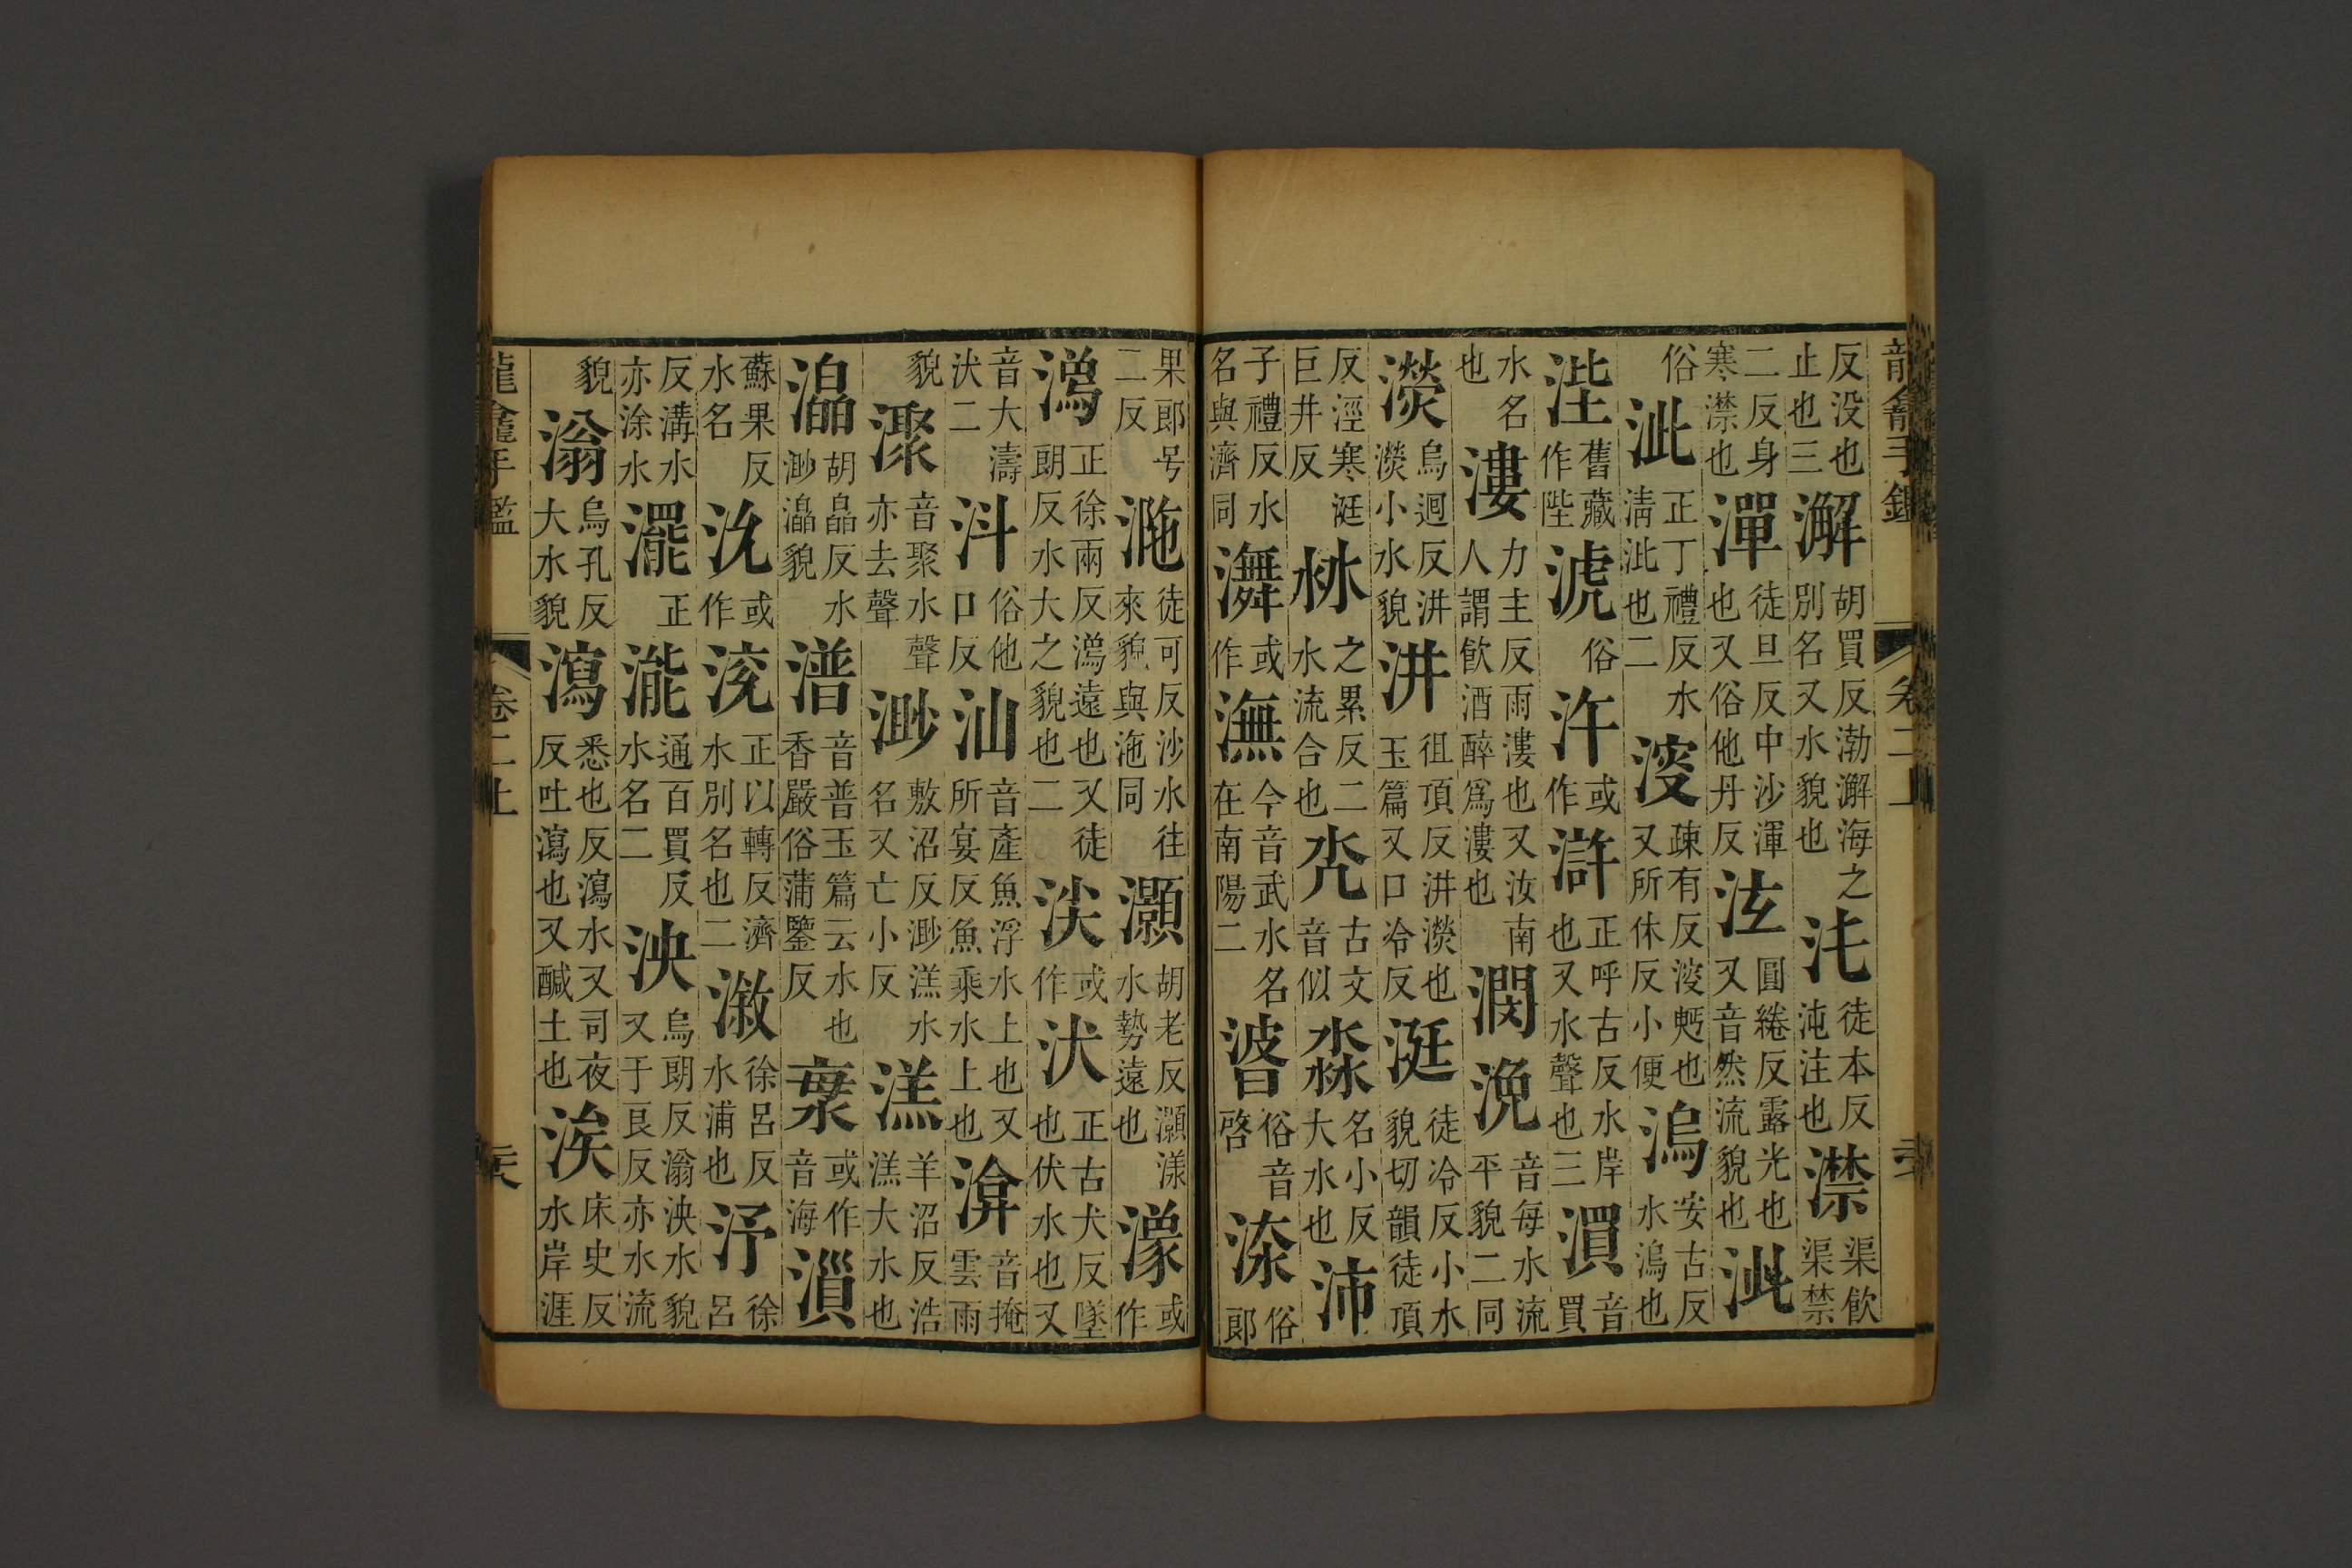 反没也止也三澥胡買反渤澥海之別名又水貌也㳈徒本反沌注也澿渠飲渠禁
二反身寒澿也潬徒旦反中沙渾也又俗他丹反泫圓綣反露光也又音然流貌也泚
俗泚正丁禮反水清泚也二溲疎有反溲麪也又所休反小便㵖安古反水㵖也
涇舊藏作陛淲俗汻或作滸正呼古反水岸也又水聲也三潣音買
水名也漊力主反雨漊也又汝南人謂飲酒醉爲漊也潤浼音每水流平貌二同
濙烏迥反汫濙小水貌汫徂頂反汫濙也玉篇又口冷反涏徒冷反小水貌切韻徒頂
反涇寒涏巨井反沝之累反二水流合也古文音似淼名小反大水也沛
子禮反水名與濟同㵲或作潕今音武水名在南陽二㴰俗音啓渿俗郎
果郎号二反㴰徒可反沙水往來貌與沲同灝胡老反灝漾水勢遠也濠或作
潒正徐兩反潒遠也又徒朗反水大之貌也二㳄或作汱正古犬反墜也伏水也又
音大濤汱二㪷俗他口反汕音產魚浮水上也又所宴反魚乘水上也渰音掩雲雨
貌㵵音聚水聲亦去聲渺敷沼反渺㵝水名又亡小反㵝羊沼反浩㵝大水也
灥胡皛反水渺灥貌潽音普玉篇云水也香嚴俗蒲鑒反或作音海湽
蘇果反水名沇或作渷正以轉反濟水別名也二漵徐呂反水浦也汿徐呂
反溝水亦涂水㴲正㴳通百買反水名二泱烏朗反滃泱水貌又于良反亦水流
貌滃烏孔反大水貌瀉悉也反瀉水又司夜反吐瀉也又鹹土也涘床史反水岸涯
龍龕手鑑 卷二上 六